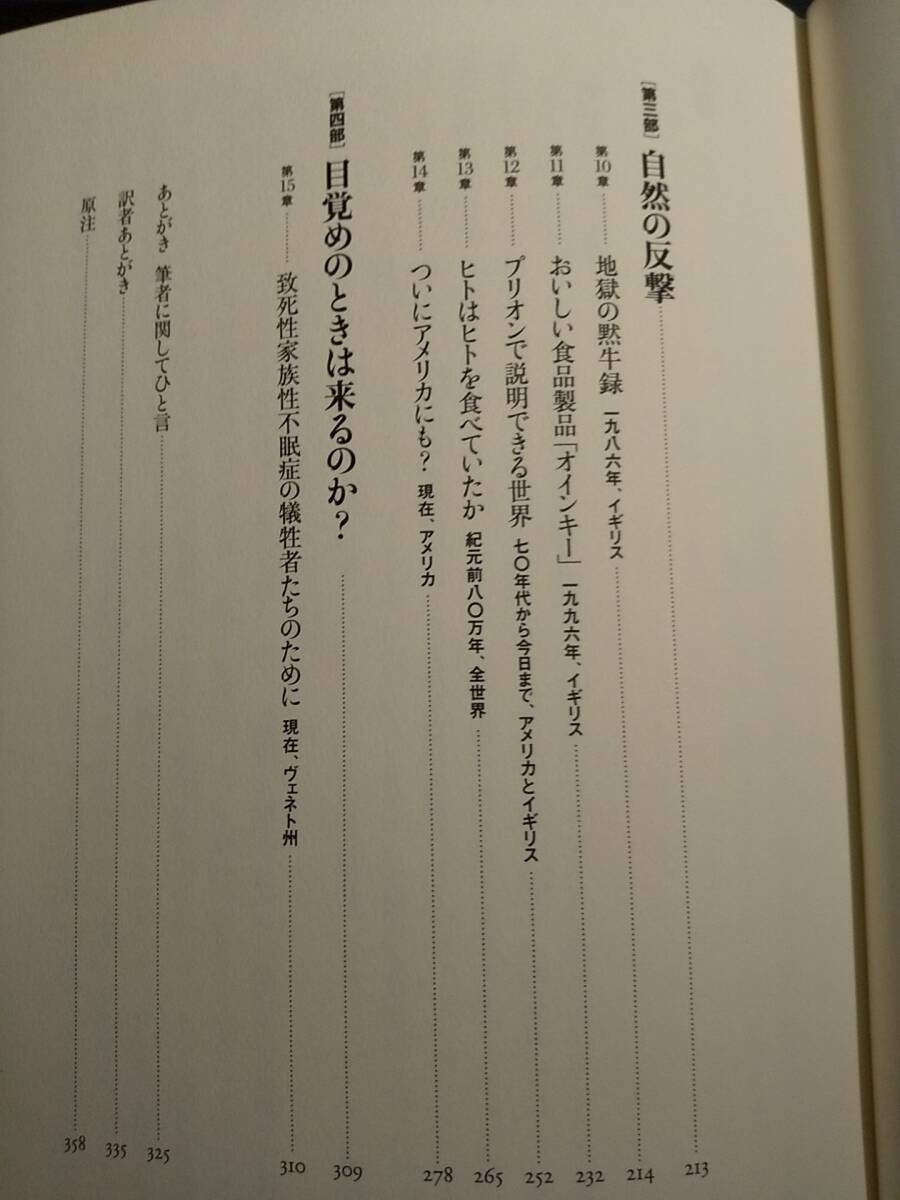 [第三部] 自然の反撃 213
第10章 地獄の黙牛録 一九八六年、イギリス 214
第11章 おいしい食品製品「オインキー」 一九九六年、イギリス 232
第12章 プリオンで説明できる世界 七〇年代から今日まで、アメリカとイギリス 252
第13章 ヒトはヒトを食べていたか 紀元前八〇万年、全世界 265
第14章 ついにアメリカにも? 現在、アメリカ 278
[第四部] 目覚めのときは来るのか? 309
第15章 致死性家族性不眠症の犠牲者たちのために 現在、ヴェネト州 310
あとがき 筆者に関してひと言 325
訳者あとがき 335
原注 358